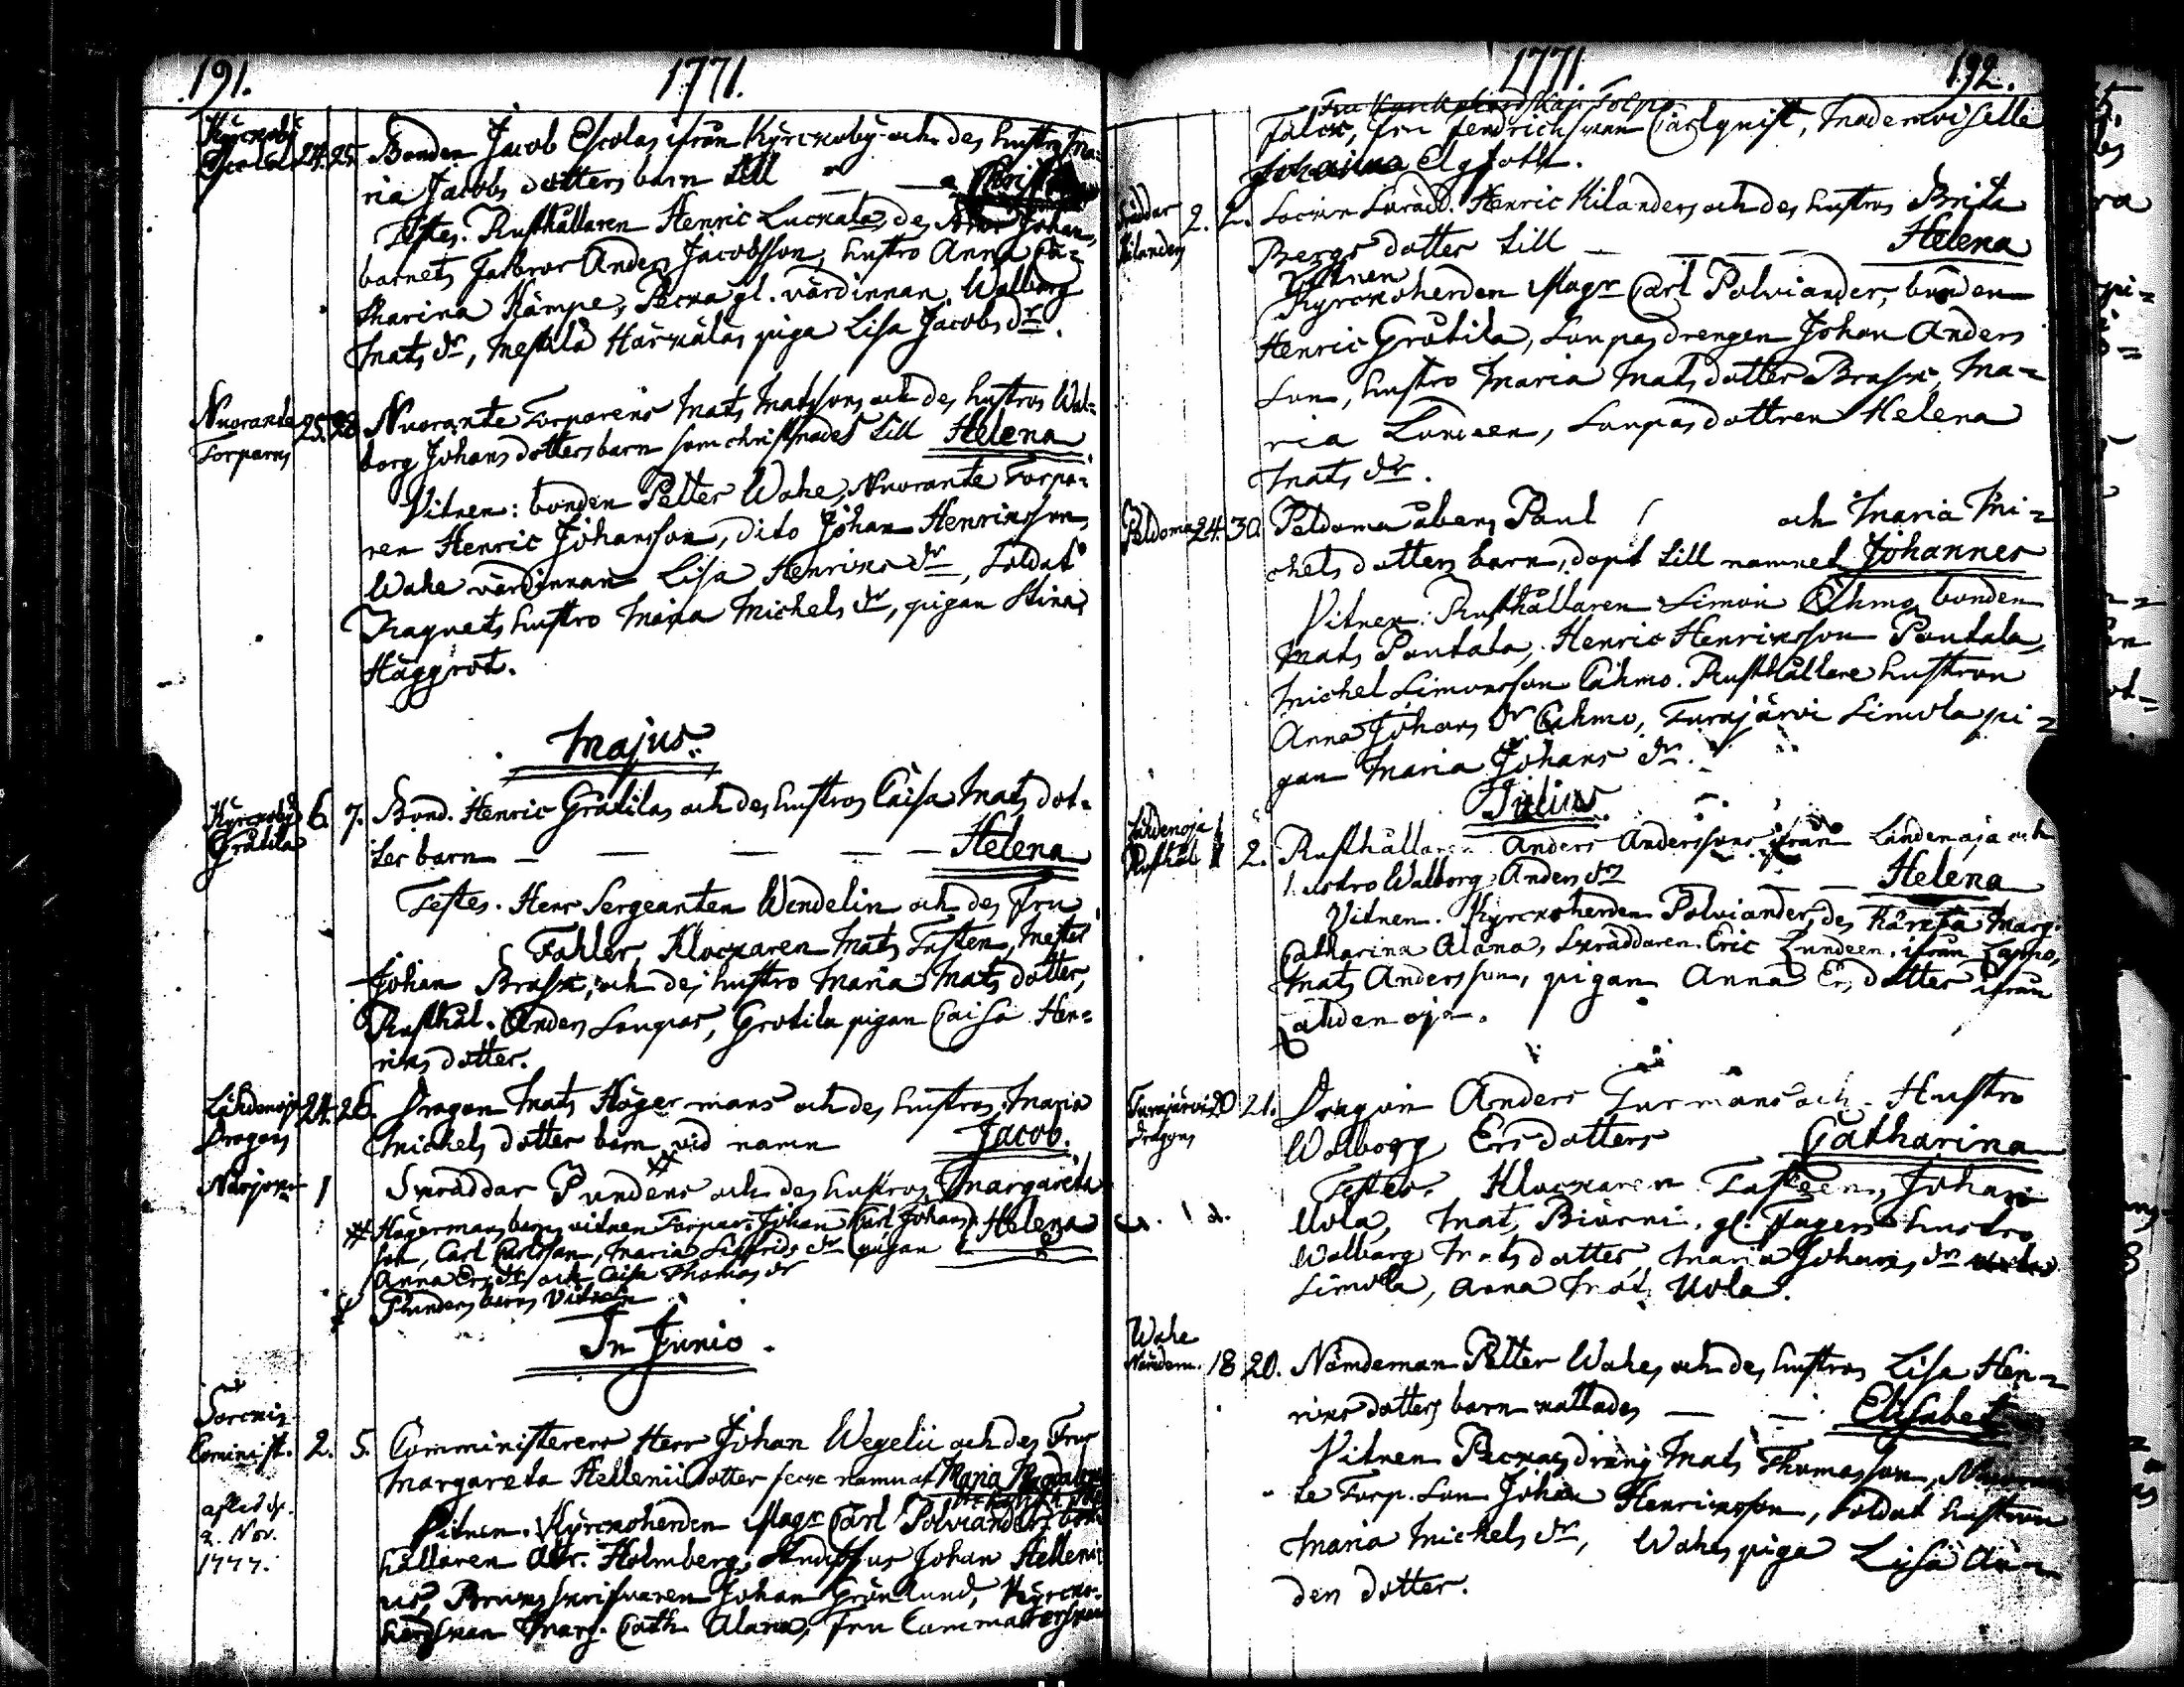 191. 1771.
Kyrckoby
Escolas 24. 25. Bonden Jacob Escolas ifrån Kyrckoby och des hustru Ma=
ria Jacobs dotters barn till
Testes. Rusthållaren Henric Luckala, des Johan,
barnets Farbror Anders Jacobsson, hustro Anna Ca=
tharina Kämpe, Pecka gl. värdinnan, Walborg
Mats dr, Mestilä Härkälas piga Lisa Jacobs dr.
Nuorante
Torpares 25. 28. Nuorante Torparens Mats Matssons och des hustros Wal=
borg Johans dotters barn som christnades till Helena
Vitnen: bonden Petter Wahe, Nuorante Torpa=
ren Henric Johansson, dito Johan Henricsson,
Wahe värdinnan Lisa Henrics dr, Soldat
hustro Maria Michels dr, pigan Stina
Häggrot.
Majus.
Kyrckoby
Gråtila 6. 7. Bond. Henric Gråtilas och des hustros Caisa Mats dot=
ter barn — — — — Helena
Testes. Herr Sergeanten Wendelin och des Fru
Fahler, Klockaren Mats Tasten, Mester
Johan Brask, och des hustro Maria Mats dotter,
Rusthål. Anders Laupas, Gråtila pigan Caisa Hen=
rics dotter.
Lähdenoja
Dragons 24. 26. Dragon Mats Högermans och des hustros Maria
Michels dotter barn vid namn Jacob.
Narjoni 1 Skräddar Pundens och des hustros Margareta
Helena
# Hagermans barns vitnen Torpar. Johan Carl Johans
son, Carl Carlsson, Maria Sigfrids dr pigan
Anna Ers dr och Caisa Thomas dr
Pundens barns Vitnen
In Junio.
Sorckis
Cominist. 2. 5. Comministerens Herr Johan Wegelii och des Frus
Margareta Hellenii dotter feck namn af Maria Magdalena
afled d.
2. Nov.
1777.
Vitnen. Kyrckoherden Magr Carl Polviander,
hållaren Abr. Holmberg, Studiosus Johan Helleni=
us, Bruksskrifvaren Johan Grönlund, Kyrcko=
herdskan Marg. Cath. Alana, Fru
1771. 192.
Falck, Fru Fendrichskan Carlquist, Mademoiselle
Johanna Elgfoth.
Skräddar
Kilanders 2. 2. Socken Skrädd. Henric Kilanders och des hustros Brita
Bergs dotter till — — — Helena
Vitnen
Kyrckoherden Magr Carl Polviander, bonden
Henric Gråtila, Laupas drengen Johan Anders
Son, hustro Maria Mats dotter Brask, Ma=
ria Lundeen, Laupas dottren Helena
Mats dr.
Peldoma 24. 30. Peldoma åboens Paul och Maria Mi=
chels dotters barn, döpt till namnet Johannes
Vitnen: Rusthållaren Simon Cähmo, bonden
Mats Pautala, Henric Henricsson Pautala,
Michel Simonsson Cähmo. Rusthållare hustron
Anna Johans dr Cähmo, Turajärvi Simola pi=
gan Maria Johans dr.
Julius.
Lähdenoja
Rusthål. 1 2. Rusthållaren Anders Anderssons ifrån Lähdenoja och
hustro Walborg Anders dr — Helena
Vitnen. Kyrckoherden Polviander, des Käresta Marg.
Catharina Alana, Skräddaren Eric Lundeen, ifrån Lappo,
Mats Andersson, pigan Anna Ers dotter ifrån
Lähdenoja.
Turajärvi
Dragons 20 21. Dragon Anders Turmans och Hustro
Walborg Ers dotters Catharina
Testes. Klockaren Tasteen, Johan
Uola, Mats Biörni, gl. Jagers hustro
Walborg Mats dotter, Maria Johans dr
Simola, Anna Mats Uola.
Wahe
Nämdem. 18 20. Nämdeman Petter Wahes och des hustros Lisa Hen=
rics dotters barn kallades — — Elisabet
Vitnen Peckas dräng Mats Thomasson, Nuoran=
te Torp. Son Johan Henricsson, Soldat hustron
Maria Michels dr, Wahes piga Lisa An=
ders dotter.